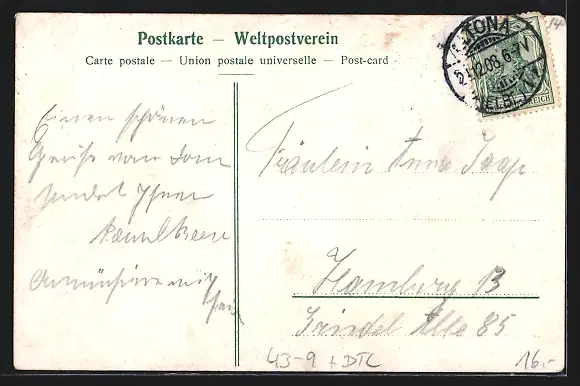 Postkarte — Weltpostverein
Carte postale — Union postale universelle — Post-card
ALTONA
21.12.08 6-7V
(ELBE)
REICH
14
Einen schönen
Grüße vom Dom
sendet Ihnen
Fräulein Anna Jaap
Hamburg 13
Grindel Allee 85
43-9 + DTC
16.-